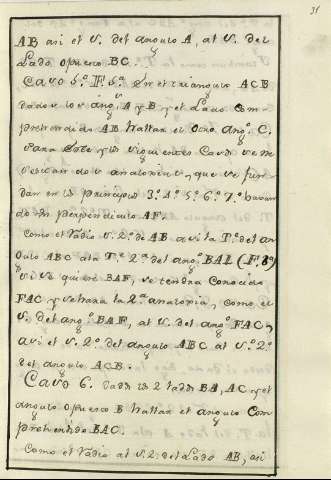 31
AB asi el S. del angulo A, al S. del
Lado opuesto BC.
Caso 5.º F. 5.ª En el triangulo ACB
dados los ang.s A y B y el Lado com-
prehendido AB hallar el otro ang.º C.
Para este y los siguientes Casos se ne
cesitan dos analogias, que se fun
dan en los principios 3.º 4.º 5.º 6.º 7.º baxan
do un perpendiculo AF.
Como el radio S. 2.º de AB asi la T.e del an
gulo ABC ala T.e 2.ª del ang.º BAL (F. 8.ª)
si se quiere BAF, se tendra Conocido
FAC y se hara la 2.ª analogia, como el
S. del ang.º BAF, al S. del ang.º FAC,
asi el S. 2.º del angulo ABC al S. 2.º
del angulo ACB.
Caso 6. Dados los 2 lados BA, AC y el
angulo opuesto B hallar el angulo Com
prehendido BAC.
Como el radio al S. 2.º del Lado AB, asi